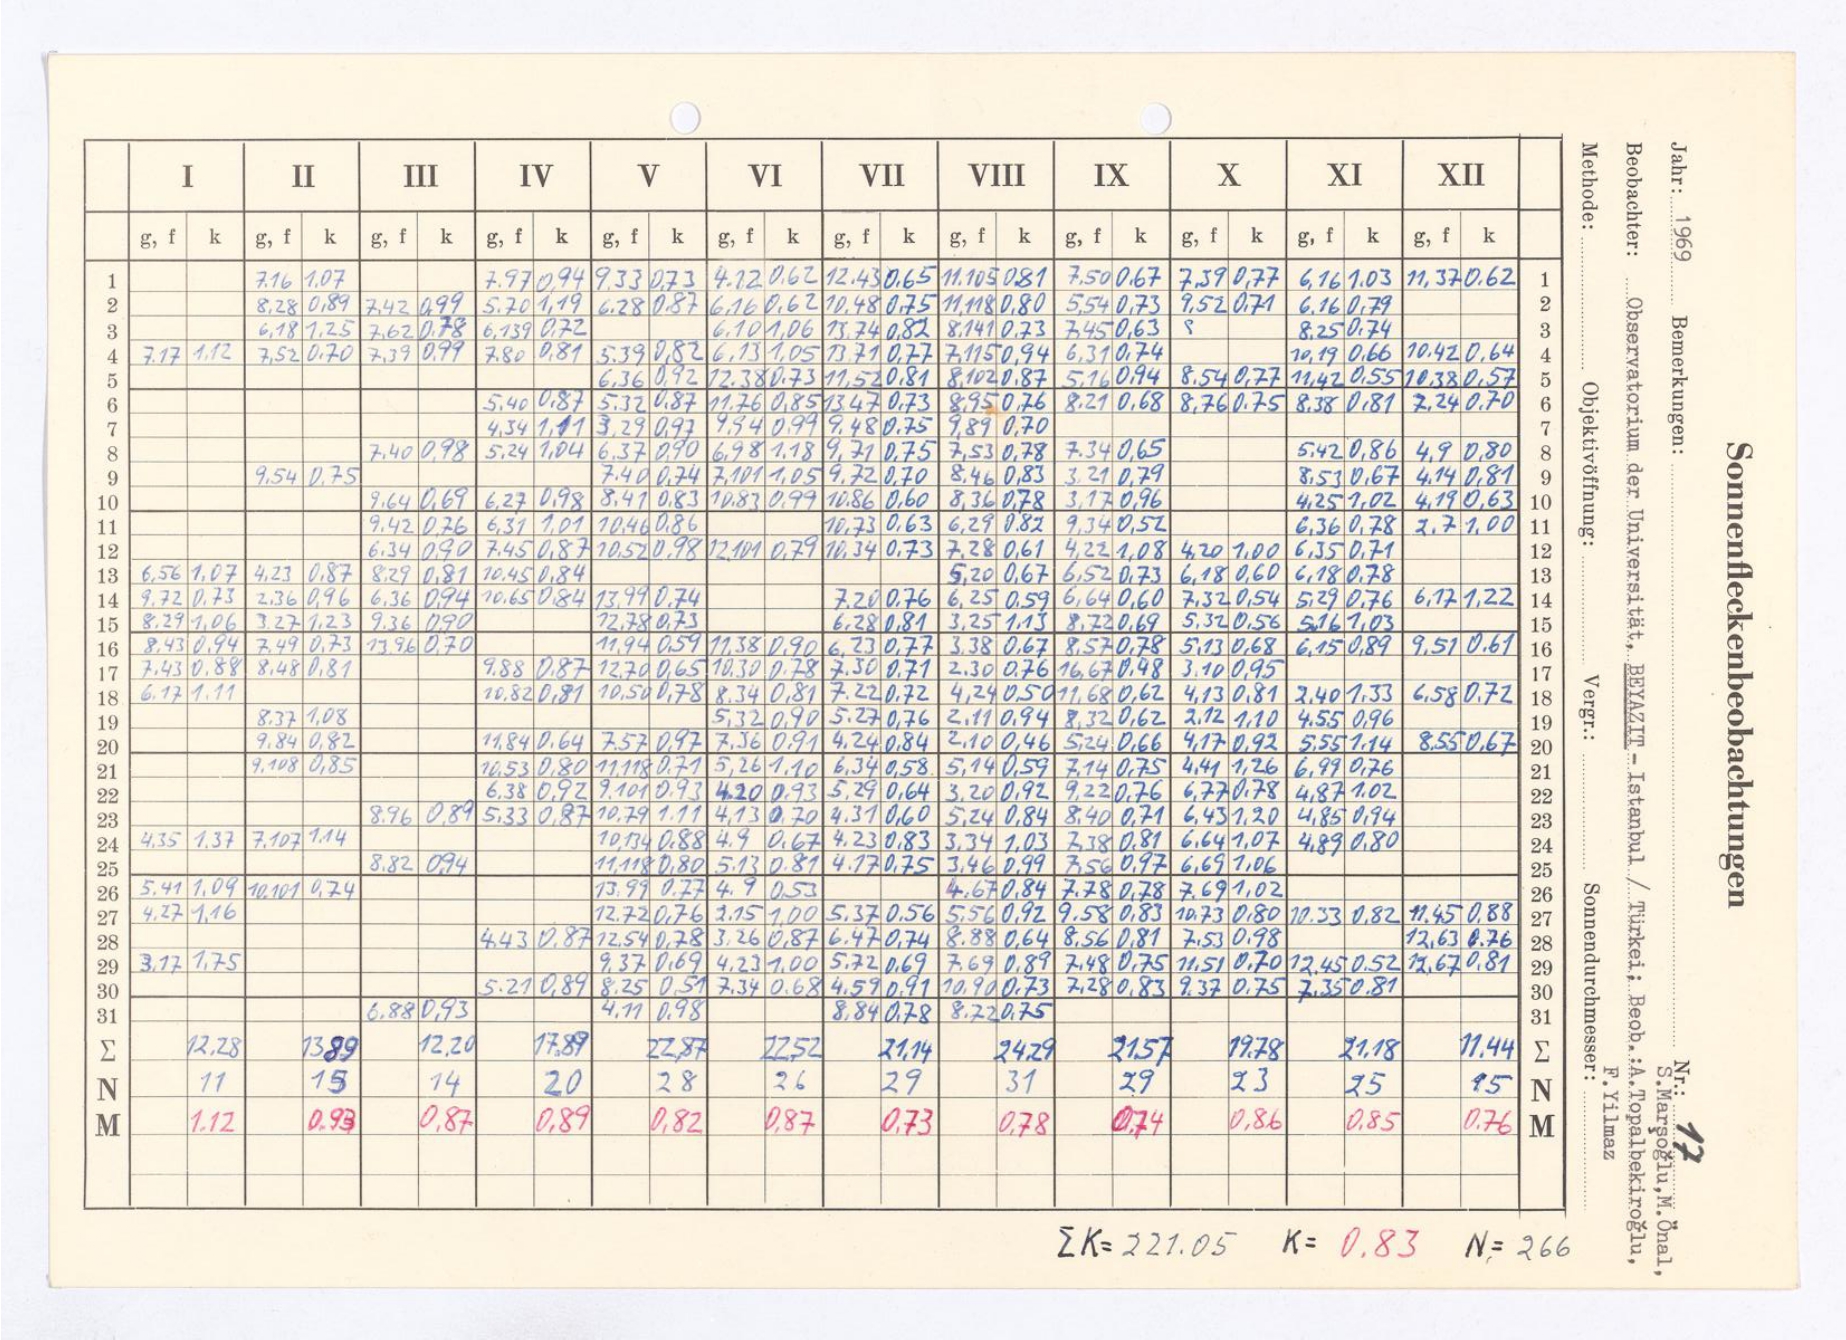 Sonnenfleckenbeobachtungen
Jahr: 1969 Bemerkungen: Nr.: 17
S.Marsoğlu, M.Önal,
Beobachter: Observatorium der Universität, BEYAZIT - Istanbul / Türkei; Beob.: A.Topalbekiroğlu,
F.Yilmaz
Methode: Objektivöffnung: Vergr.: Sonnendurchmesser:
I II III IV V VI VII VIII IX X XI XII
g, f k g, f k g, f k g, f k g, f k g, f k g, f k g, f k g, f k g, f k g, f k g, f k
1 7.16 1,07 7.97 0,94 9.33 0,73 4.22 0,62 12.43 0.65 11.105 0.81 7.50 0,67 7.39 0,77 6,16 1.03 11,37 0.62 1
2 8.28 0,89 7,42 0,99 5.70 1,19 6.28 0.87 6.16 0,62 10,48 0,75 11,118 0,80 5,54 0,73 9,52 0,71 6.16 0,79 2
3 6,18 1.25 7.62 0,78 6,139 0,72 6.10 1,06 13,74 0,82 8.141 0,73 7,45 0,63 8.25 0,74 3
4 7.17 1,12 7,52 0,70 7,39 0,99 7.80 0,81 5.39 0,82 6,13 1,05 13,71 0,77 7,115 0,94 6,31 0,74 10,19 0,66 10.42 0,64 4
5 6,36 0,92 12.38 0.73 11,52 0.81 8,102 0.87 5,16 0,94 8.54 0,77 11,42 0,55 10,38 0,57 5
6 5.40 0.87 5.32 0.87 11.76 0,85 13,47 0,73 8,95 0,76 8.21 0,68 8,76 0.75 8.38 0,81 7,24 0.70 6
7 4,34 1,11 3,29 0,97 9,94 0,99 9,48 0.75 9,89 0,70 7
8 7.40 0,98 5,24 1,04 6.37 0,90 6,98 1.18 9,71 0,75 7,53 0,78 7.34 0,65 5,42 0,86 4,9 0,80 8
9 9.54 0,75 7.40 0,74 7,101 1,05 9,72 0,70 8.46 0,83 3,21 0,79 8,53 0,67 4,14 0,81 9
10 9.64 0,69 6,27 0,98 8,41 0,83 10,83 0,99 10,86 0,60 8,36 0,78 3,17 0,96 4,25 1,02 4,19 0,63 10
11 9,42 0,76 6,31 1,01 10,46 0,86 10,73 0,63 6,29 0.82 9,34 0,52 6,36 0,78 2.7 1,00 11
12 6.34 0,90 7.45 0,87 10,52 0,98 12,101 0,79 10,34 0,73 7,28 0,61 4,22 1,08 4,20 1,00 6,35 0,71 12
13 6,56 1,07 4.23 0,87 8,29 0,81 10.45 0,84 5,20 0,67 6,52 0,73 6,18 0,60 6,18 0,78 13
14 9,72 0.73 2.36 0,96 6,36 0,94 10,65 0,84 13,99 0,74 7.20 0,76 6,25 0.59 6,64 0,60 7,32 0,54 5,29 0,76 6,17 1,22 14
15 8.29 1,06 3,27 1,23 9,36 0,90 12,78 0,73 6,28 0,81 3,25 1,13 8,72 0,69 5,32 0,56 5,16 1,03 15
16 8,43 0,94 7,49 0,73 13,96 0,70 11,94 0.59 11,38 0,90 6,23 0,77 3.38 0,67 8,57 0,78 5,13 0,68 6,15 0,89 9,51 0.61 16
17 7.43 0,88 8.48 0,81 9.88 0,87 12,70 0,65 10,30 0,78 7.30 0,71 2.30 0.76 16,67 0,48 3.10 0,95 17
18 6.17 1.11 10,82 0,81 10,50 0,78 8.34 0,81 7.22 0,72 4,24 0,50 11,68 0,62 4,13 0,81 2.40 1.33 6.58 0,72 18
19 8.37 1,08 5,32 0,90 5.27 0,76 2.11 0,94 8,32 0,62 2.12 1.10 4.55 0,96 19
20 9,84 0,82 11,84 0.64 7,57 0,97 7,36 0,91 4.24 0,84 2.10 0,46 5,24 0,66 4,17 0,92 5.55 1.14 8.55 0,67 20
21 9,108 0,85 10,53 0,80 11,118 0,71 5,26 1,10 6,34 0,58 5,14 0,59 7,14 0,75 4,41 1,26 6,99 0,76 21
22 6,38 0,92 9.101 0,93 4.20 0,93 5,29 0,64 3.20 0,92 9,22 0,76 6,77 0,78 4,87 1.02 22
23 8.96 0,89 5.33 0,87 10.79 1.11 4,13 0,70 4.31 0,60 5,24 0,84 8,40 0,71 6,43 1,20 4,85 0,94 23
24 4.35 1.37 7,107 1.14 10,134 0,88 4.9 0,67 4.23 0,83 3,34 1,03 7,38 0,81 6.64 1,07 4,89 0,80 24
25 8.82 0,94 11,118 0,80 5.13 0.81 4.17 0,75 3,46 0,99 7,56 0,97 6,69 1,06 25
26 5.41 1,09 10,101 0,74 13,99 0,77 4.9 0,53 4.67 0,84 7.78 0,78 7.69 1,02 26
27 4,27 1,16 12,72 0,76 2.15 1,00 5.37 0,56 5,56 0,92 9.58 0,83 10,73 0,80 10.33 0,82 11,45 0,88 27
28 4.43 0.87 12,54 0,78 3.26 0,87 6,47 0,74 8.88 0,64 8,56 0,81 7.53 0,98 12,63 0.76 28
29 3.17 1,75 9,37 0,69 4,23 1.00 5,72 0,69 7.69 0.89 7,48 0,75 11,51 0,70 12,45 0.52 12,67 0,81 29
30 5.21 0,89 8,25 0,51 7.34 0.68 4.59 0,91 10,90 0.73 7,28 0,83 9.37 0.75 7.35 0.81 30
31 6.88 0,93 4,11 0,98 8,84 0,78 8.72 0,75 31
Σ 12,28 13,89 12,20 17,89 22,87 22,52 21,14 24,29 21,57 19,78 21,18 11,44 Σ
N 11 15 14 20 28 26 29 31 29 23 25 15 N
M 1.12 0.93 0,87 0,89 0,82 0,87 0,73 0,78 0,74 0,86 0,85 0.76 M
ΣK= 221.05 K= 0.83 N= 266